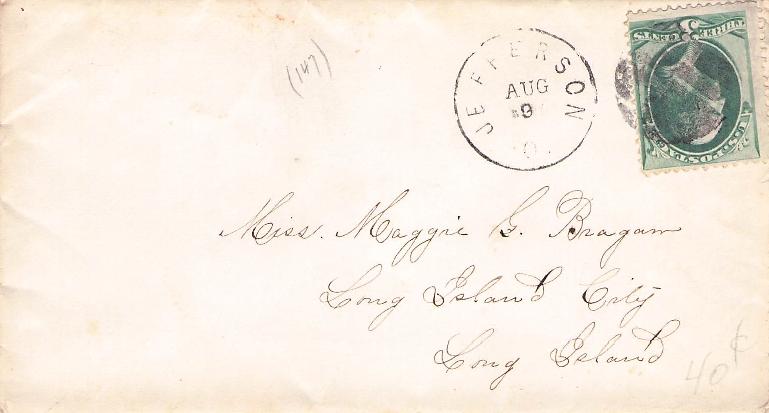 (147)
JEFFERSON
AUG
9
O.
Miss. Maggie G. Bragaw
Long Island City
Long Island
40¢